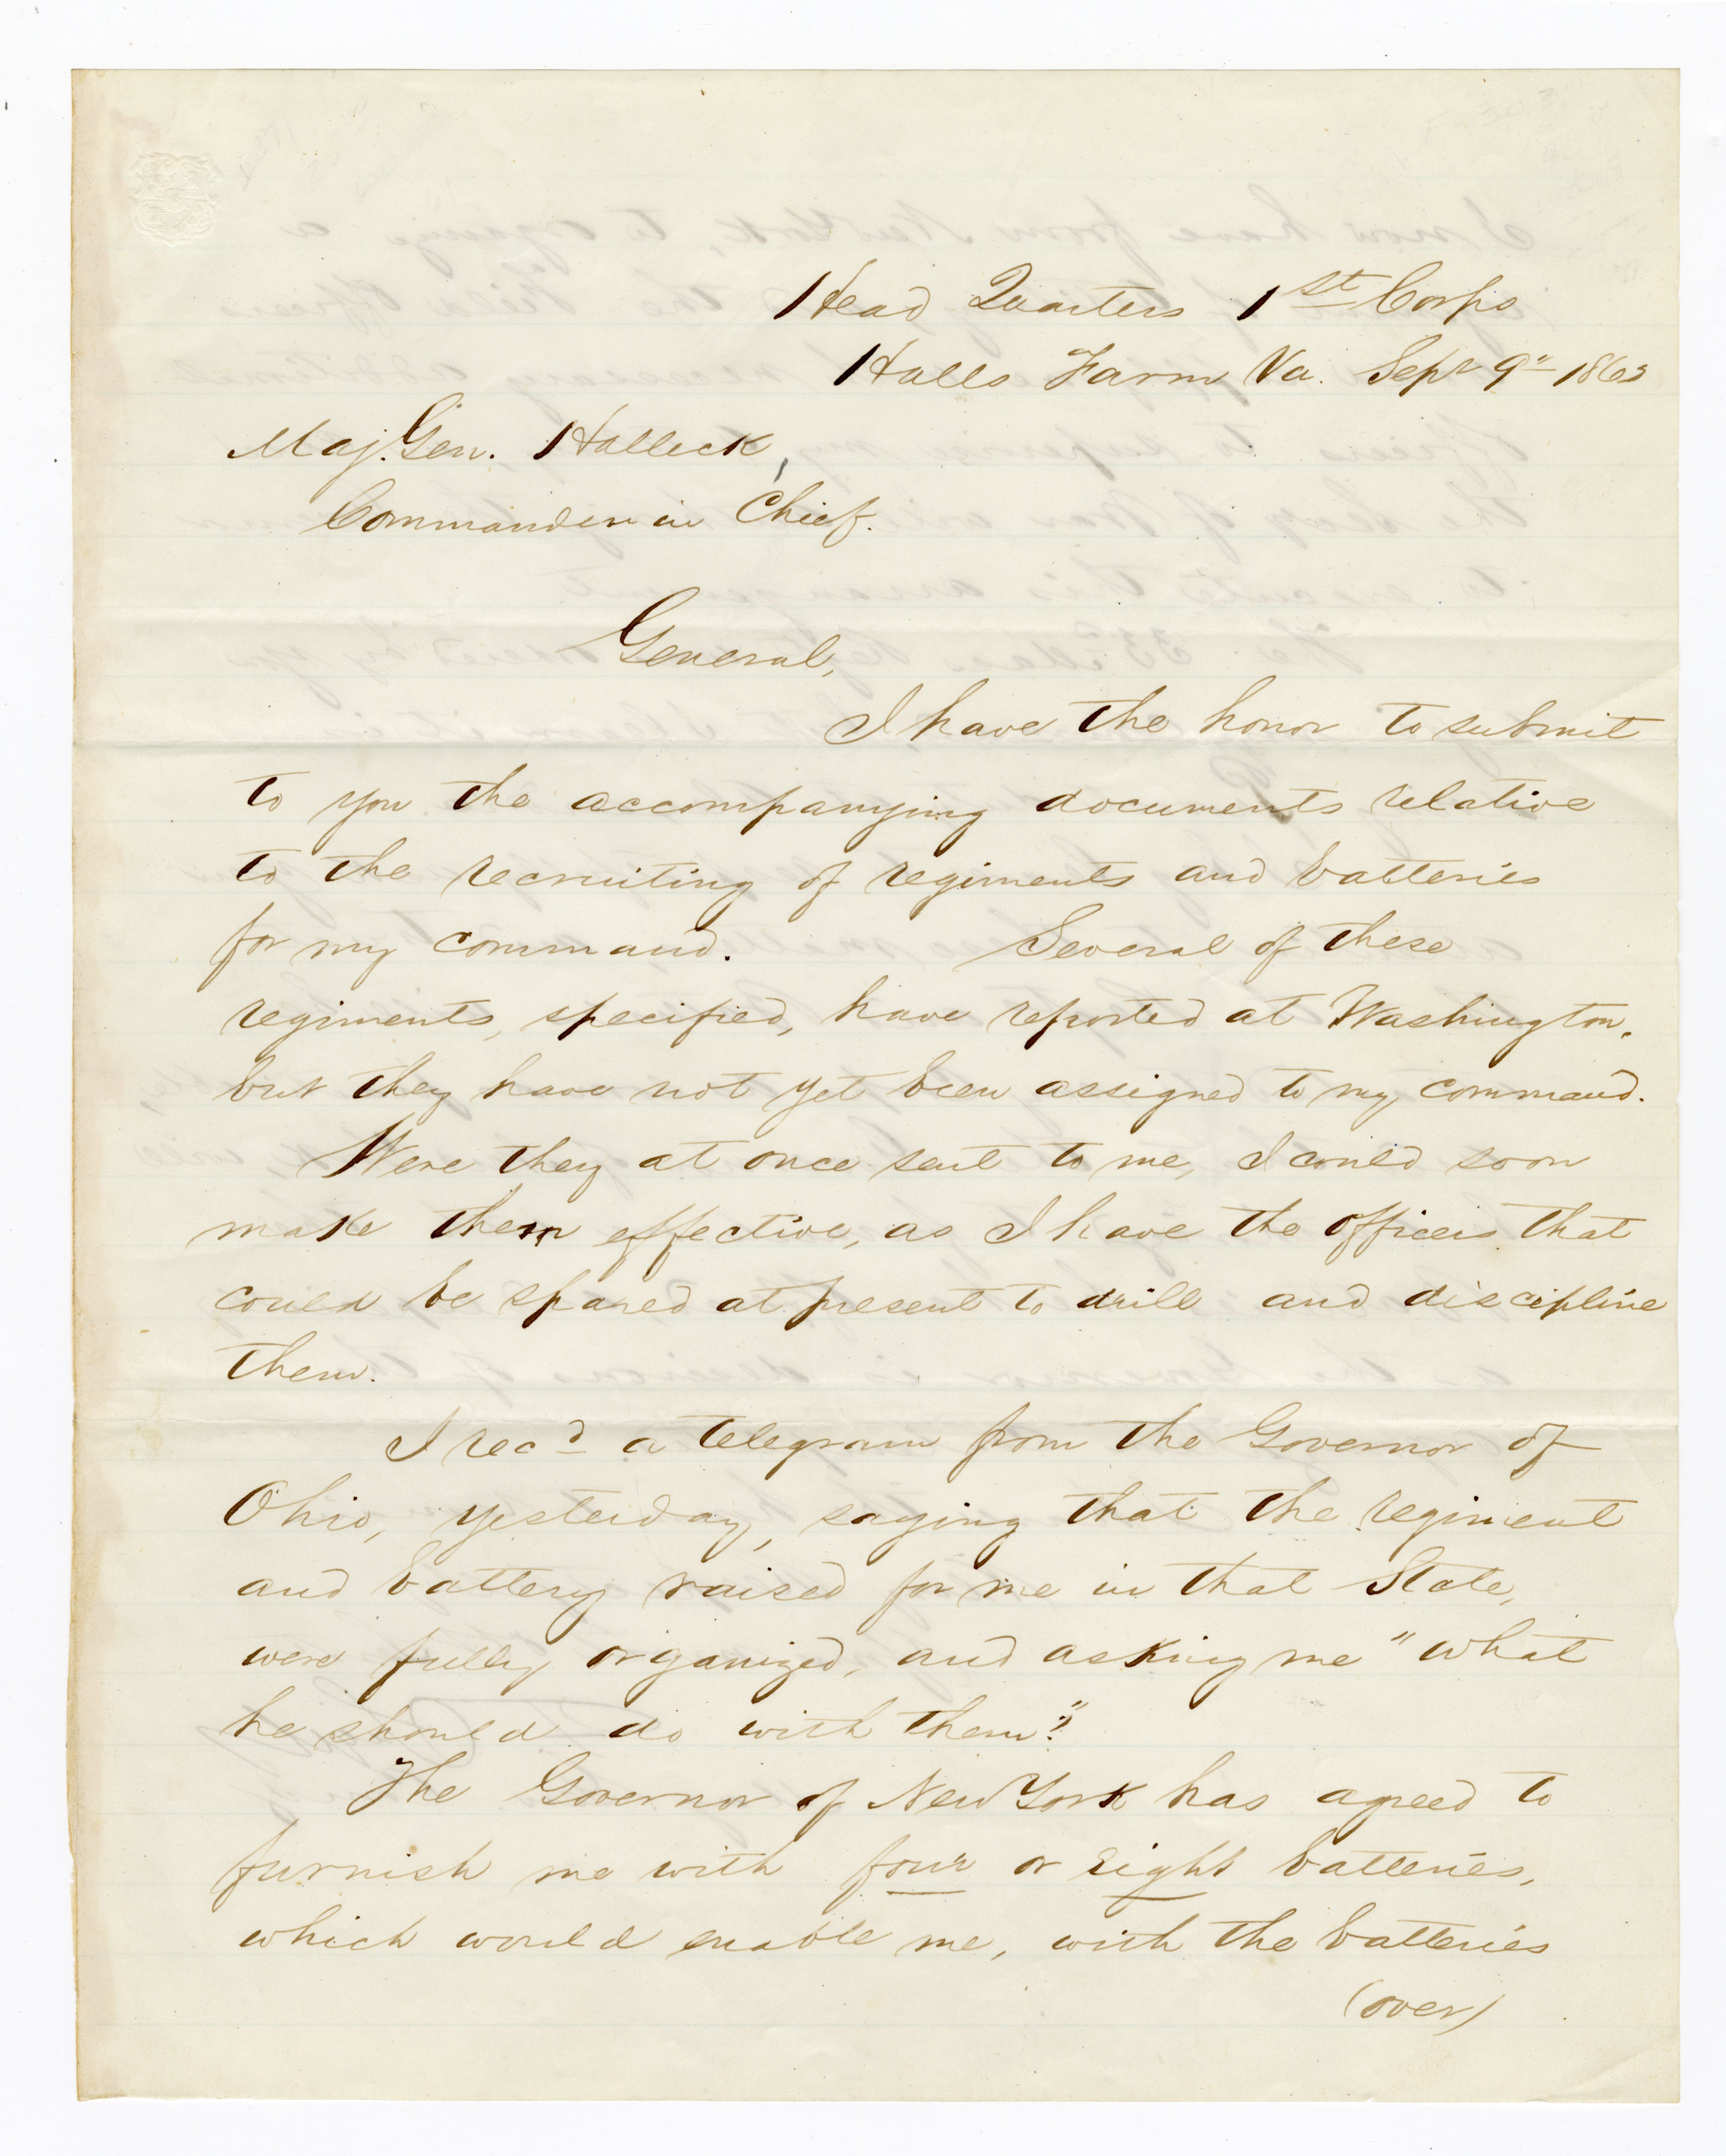 Head Quarters 1st Corps
Halls Farm Va. Sept 9" 1862
Maj. Gen. Halleck,
Commander in Chief.
General,
I have the honor to submit
to you the accompanying documents relative
to the recruiting of regiments and batteries
for my command. Several of these
regiments, specified, have reported at Washington,
but they have not yet been assigned to my command.
Were they at once sent to me, I could soon
make them effective, as I have the officers that
could be spared at present to drill and discipline
them.
I recd a telegram from the Governor of
Ohio, yesterday, saying that the regiment
and battery raised for me in that State,
were fully organized, and asking me "what
he should do with them?"
The Governor of New York has agreed to
furnish me with four or eight batteries,
which would enable me, with the batteries
(over)